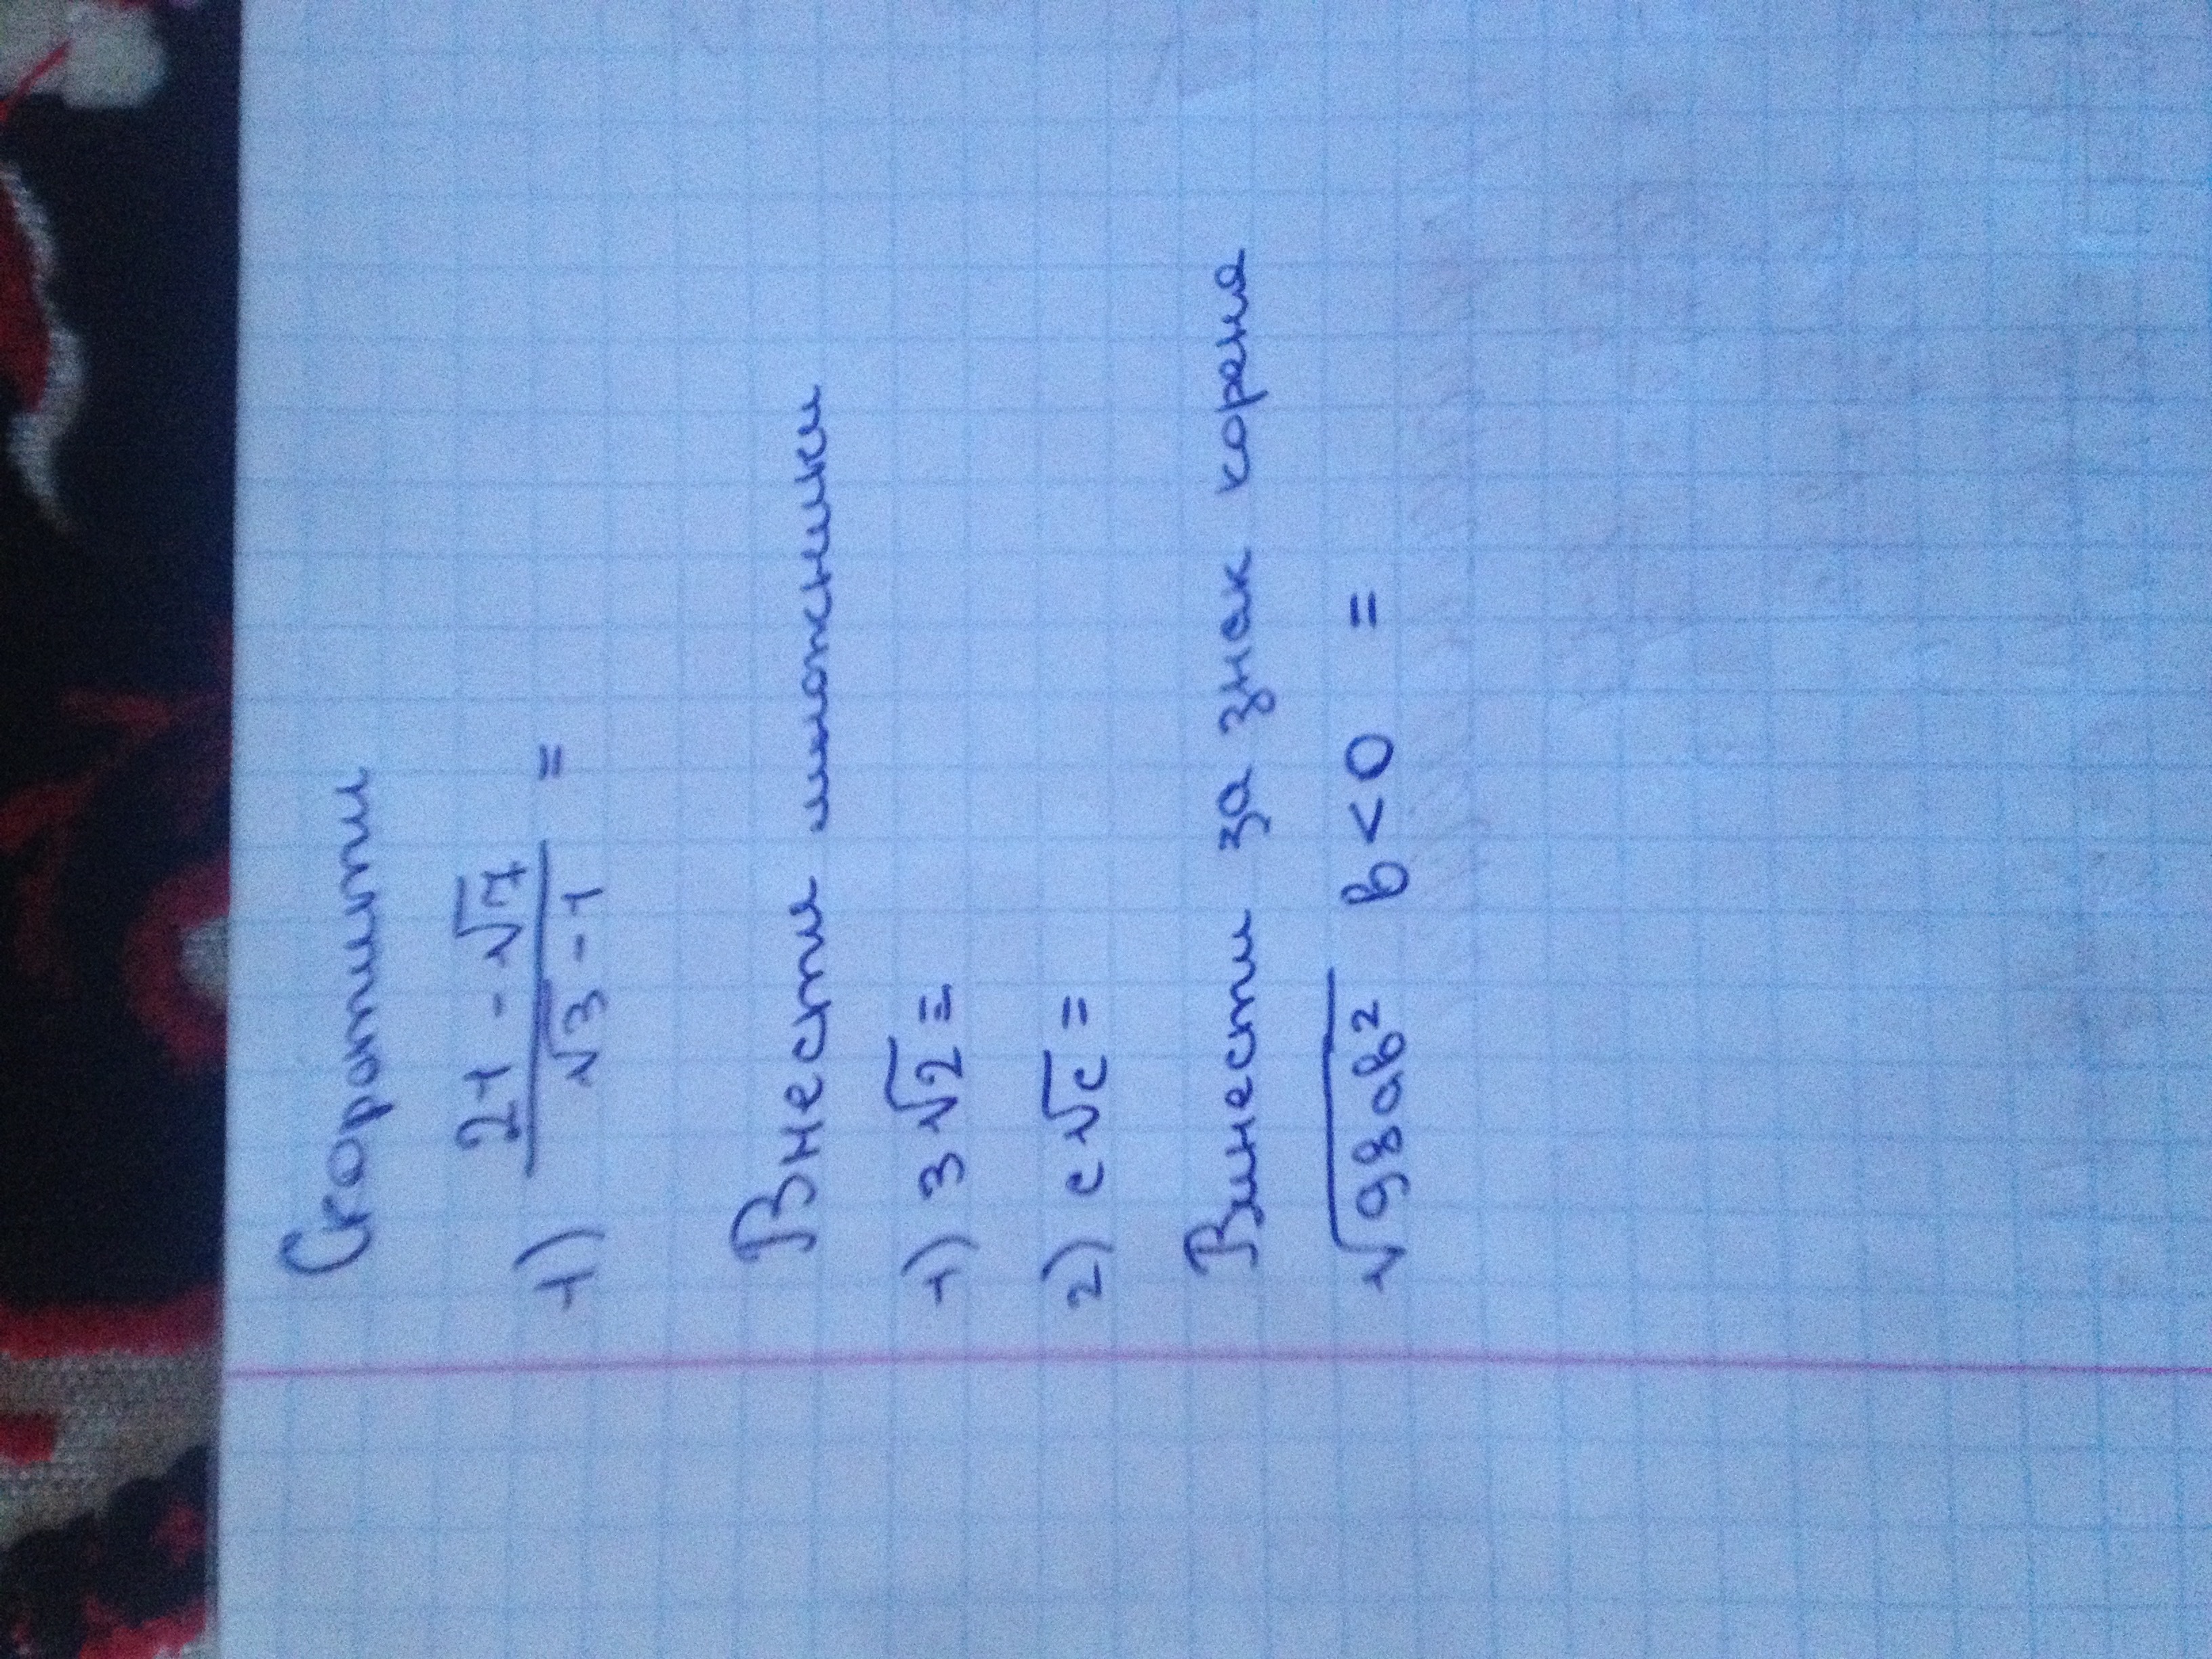 Скоротити
1) 21 - √7 / √3 - 1 =
Внести множники
1) 3√2 =
2) c√c =
Винести за знак кореня
√98ab² b < 0 =